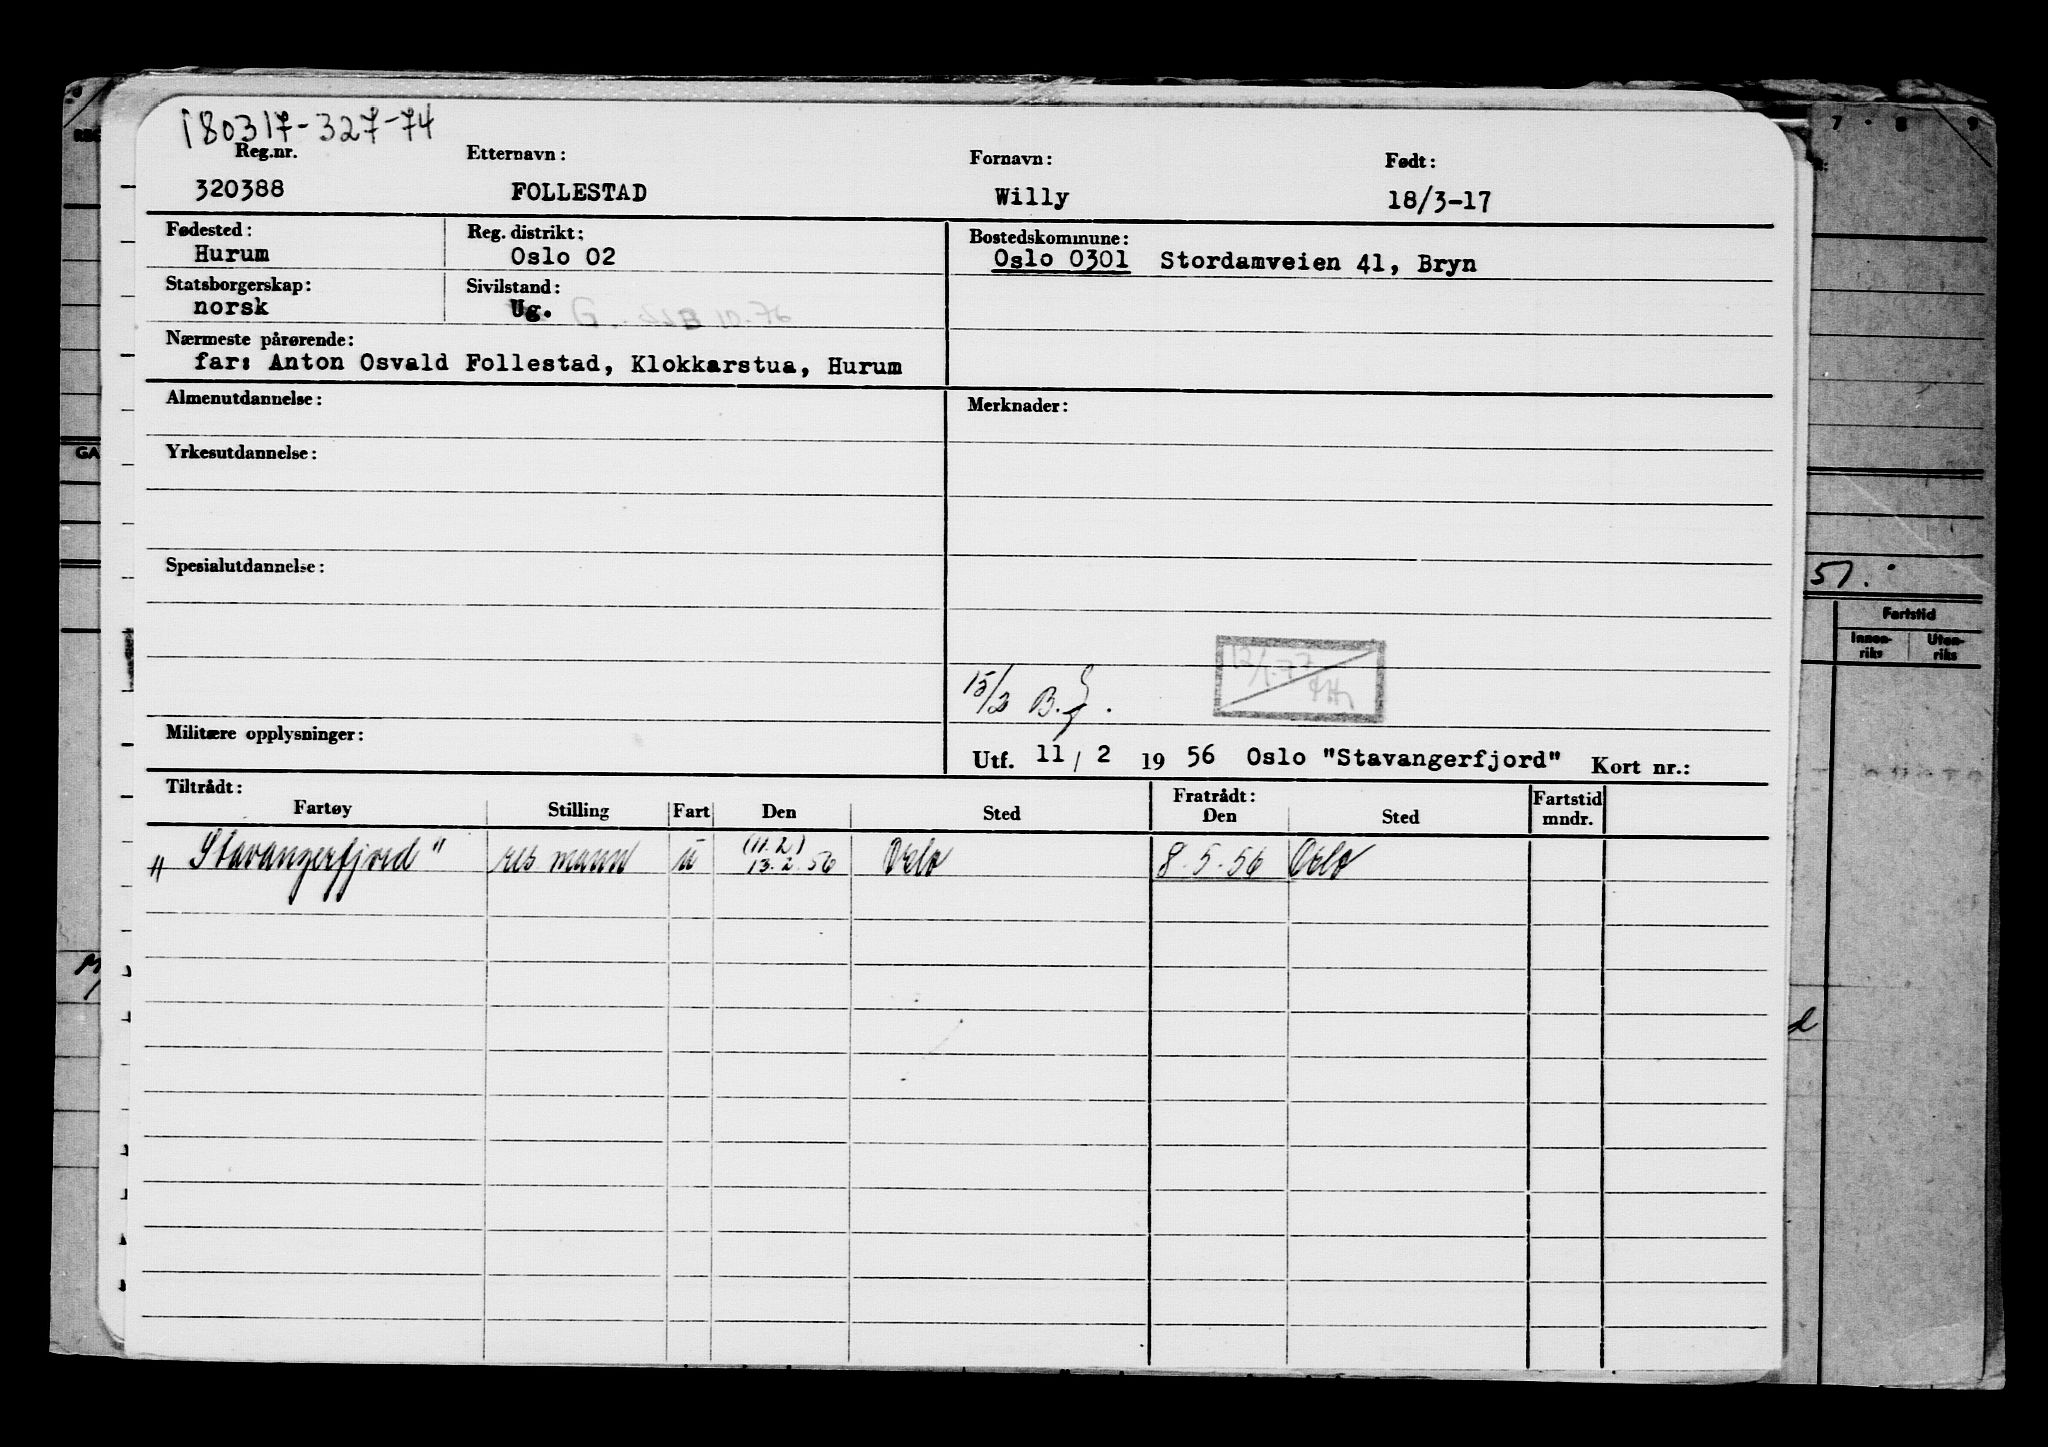 180317-327-74
Reg.nr. Etternavn: Fornavn: Født:
320388 FOLLESTAD Willy 18/3-17
Fødested: Reg. distrikt: Bostedskommune:
Hurum Oslo 02 Oslo 0301 Stordamveien 41, Bryn
Statsborgerskap: Sivilstand:
norsk Ug. G. 10.76
Nærmeste pårørende:
far: Anton Osvald Follestad, Klokkarstua, Hurum
Almenutdannelse: Merknader:
Yrkesutdannelse:
Spesialutdannelse:
15/2 B.
Militære opplysninger:
Utf. 11 / 2 19 56 Oslo "Stavangerfjord" Kort nr.:
Tiltrådt: Fratrådt: Fartstid mndr.
Fartøy Stilling Fart Den Sted Den Sted
"Stavangerfjord" res mann u (11.2) 13.2.56 Oslo 8.5.56 Oslo
7 8 9
GA
51.
Fartstid
Innen-riks Uten-riks